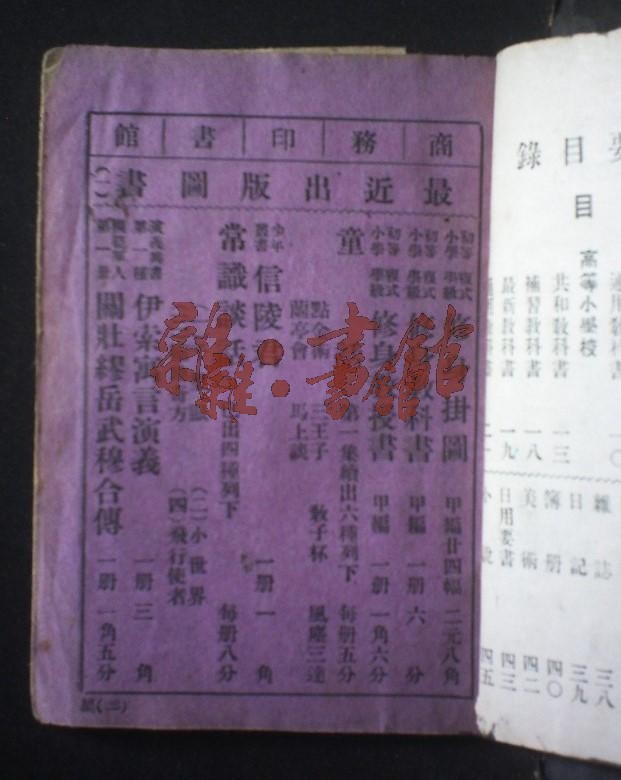 商務印書館
最近出版圖書(一)
初等小學 複式學級 修身掛圖 甲編廿四幅 二元八角
初等小學 複式學級 教科書 甲編 一册 六分
初等小學 複式學級 修身教授書 甲編 一册 一角六分
童 第二集續出六種列下 每册五分
點金術 三王子 救子杯 風塵三達
蘭亭會 馬上談
少年叢書 信陵君 一册 一角
常識談話 出四種列下 每册八分
(二)小世界
方 (四)飛行使者
演義叢書第一種 伊索寓言演義 一册 三角
軍人 第一册 關壯繆岳武穆合傳 一册 一角五分
(二)
要目錄
目
高等小學校
共和教科書 一三
補習教科書 一八
最新教科書 一九
雜誌 三八
日記 三九
簿册 四〇
美術 四二
日用要書 四三
小說 四五
雜·書館